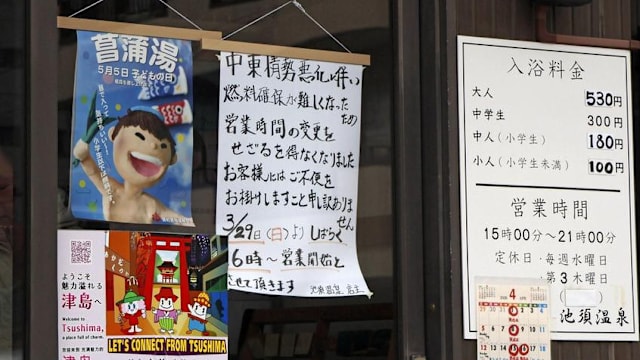 菖蒲湯
5月5日 子どもの日
中東情勢悪化に伴い
燃料確保が難しくなった
ため
営業時間の変更を
せざるを得なくなりました
お客様にはご不便を
お掛けしますこと申し訳ありま
せん
3/29日(日)より しばらく
16時〜営業開始と
させて頂きます
池須温泉 店主
ようこそ
魅力溢れる
津島へ
Welcome to
Tsushima,
a place full of charm.
LET'S CONNECT FROM TSUSHIMA
入浴料金
大人 530円
中学生 300円
中人(小学生) 180円
小人(小学生未満) 100円
営業時間
15時00分〜21時00分
定休日・毎週水曜日
・第3木曜日
池須温泉
4